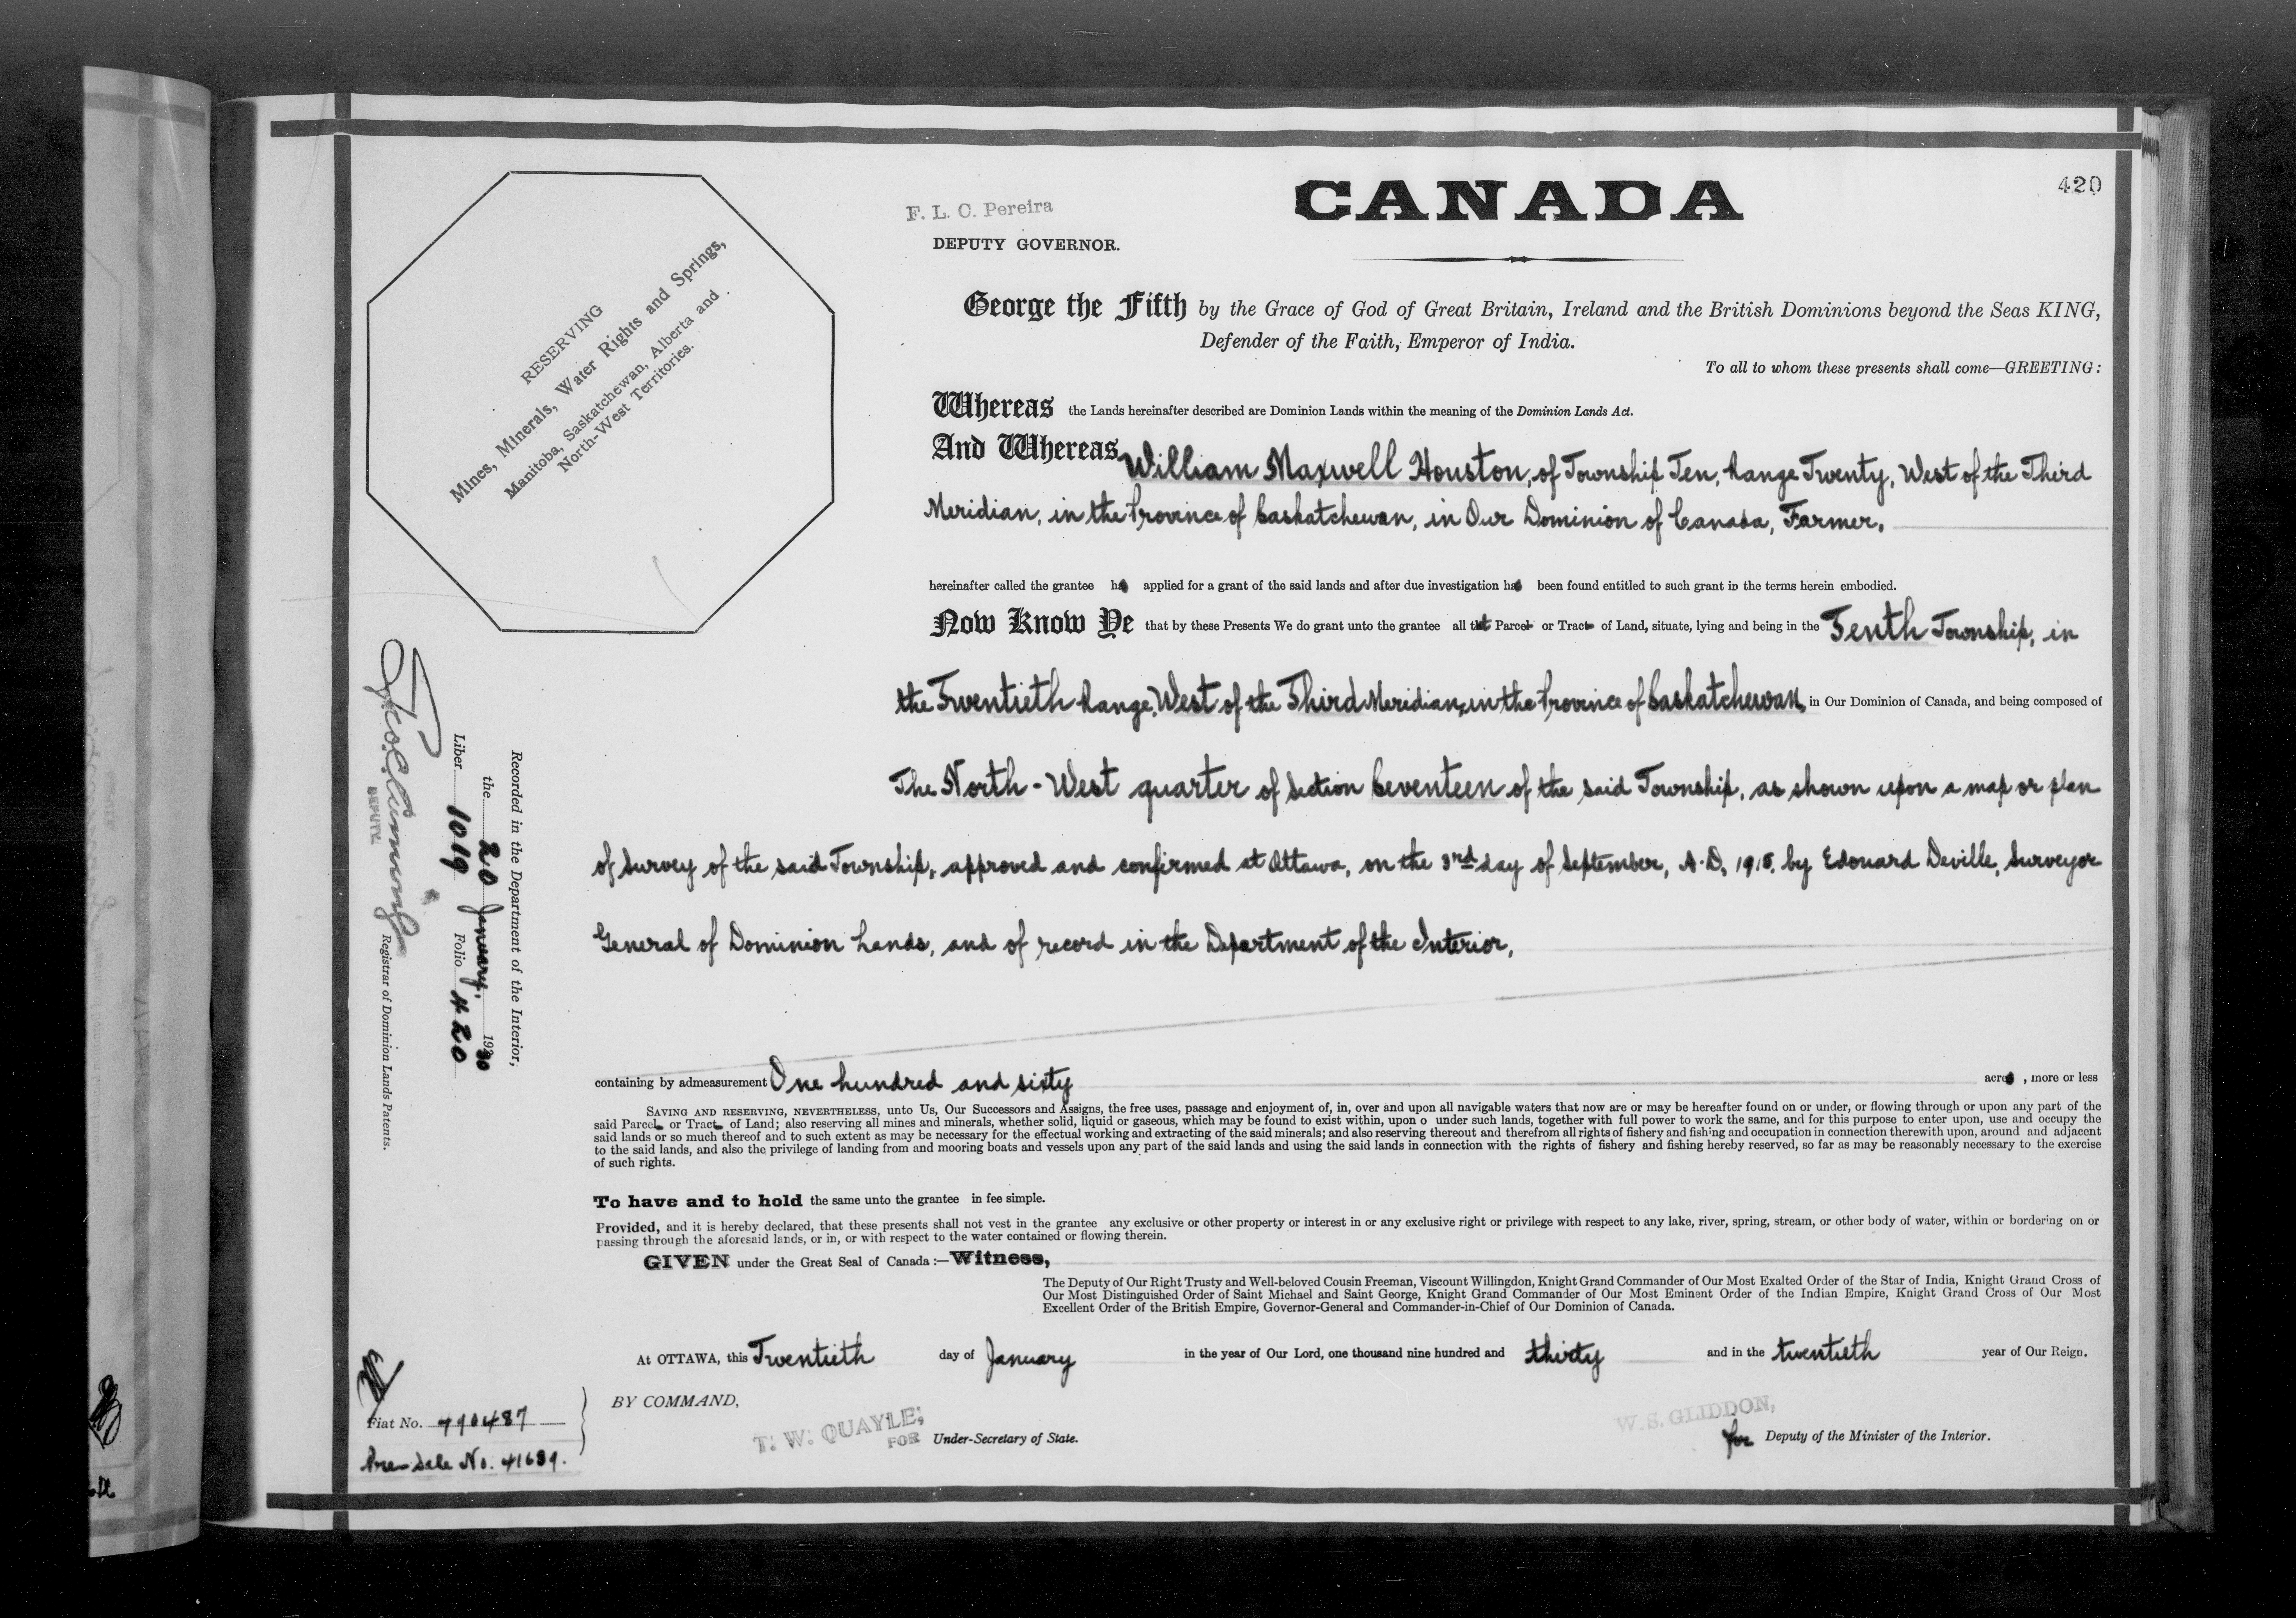 420
F. L. C. Pereira
DEPUTY GOVERNOR.
CANADA
RESERVING
Mines, Minerals, Water Rights and Springs,
Manitoba, Saskatchewan, Alberta and
North-West Territories.
George the Fifth by the Grace of God of Great Britain, Ireland and the British Dominions beyond the Seas KING,
Defender of the Faith, Emperor of India.
To all to whom these presents shall come—GREETING:
Whereas the Lands hereinafter described are Dominion Lands within the meaning of the Dominion Lands Act.
And Whereas William Maxwell Houston, of Township Ten, Range Twenty, West of the Third
Meridian, in the Province of Saskatchewan, in Our Dominion of Canada, Farmer,
hereinafter called the grantee has applied for a grant of the said lands and after due investigation has been found entitled to such grant in the terms herein embodied.
Now Know Ye that by these Presents We do grant unto the grantee all that Parcel or Tract of Land, situate, lying and being in the Tenth Township, in
the Twentieth Range, West of the Third Meridian, in the Province of Saskatchewan, in Our Dominion of Canada, and being composed of
The North-West quarter of Section Seventeen of the said Township, as shown upon a map or plan
of Survey of the said Township, approved and confirmed at Ottawa, on the 3rd day of September, A.D. 1915, by Edouard Deville, Surveyor
General of Dominion Lands, and of record in the Department of the Interior,
containing by admeasurement One hundred and sixty acres, more or less
SAVING AND RESERVING, NEVERTHELESS, unto Us, Our Successors and Assigns, the free uses, passage and enjoyment of, in, over and upon all navigable waters that now are or may be hereafter found on or under, or flowing through or upon any part of the
said Parcel or Tract of Land; also reserving all mines and minerals, whether solid, liquid or gaseous, which may be found to exist within, upon o under such lands, together with full power to work the same, and for this purpose to enter upon, use and occupy the
said lands or so much thereof and to such extent as may be necessary for the effectual working and extracting of the said minerals; and also reserving thereout and therefrom all rights of fishery and fishing and occupation in connection therewith upon, around and adjacent
to the said lands, and also the privilege of landing from and mooring boats and vessels upon any part of the said lands and using the said lands in connection with the rights of fishery and fishing hereby reserved, so far as may be reasonably necessary to the exercise
of such rights.
To have and to hold the same unto the grantee in fee simple.
Provided, and it is hereby declared, that these presents shall not vest in the grantee any exclusive or other property or interest in or any exclusive right or privilege with respect to any lake, river, spring, stream, or other body of water, within or bordering on or
passing through the aforesaid lands, or in, or with respect to the water contained or flowing therein.
GIVEN under the Great Seal of Canada:—Witness,
The Deputy of Our Right Trusty and Well-beloved Cousin Freeman, Viscount Willingdon, Knight Grand Commander of Our Most Exalted Order of the Star of India, Knight Grand Cross of
Our Most Distinguished Order of Saint Michael and Saint George, Knight Grand Commander of Our Most Eminent Order of the Indian Empire, Knight Grand Cross of Our Most
Excellent Order of the British Empire, Governor-General and Commander-in-Chief of Our Dominion of Canada.
At OTTAWA, this Twentieth day of January in the year of Our Lord, one thousand nine hundred and thirty and in the twentieth year of Our Reign.
BY COMMAND,
T. W. QUAYLE,
FOR Under-Secretary of State.
W. S. GLIDDON,
for Deputy of the Minister of the Interior.
Recorded in the Department of the Interior,
the 20 January, 1930
Liber 1019 Folio 420
DEPUTY. Registrar of Dominion Lands Patents.
Fiat No. 490487
Pre-Sale No. 41689.